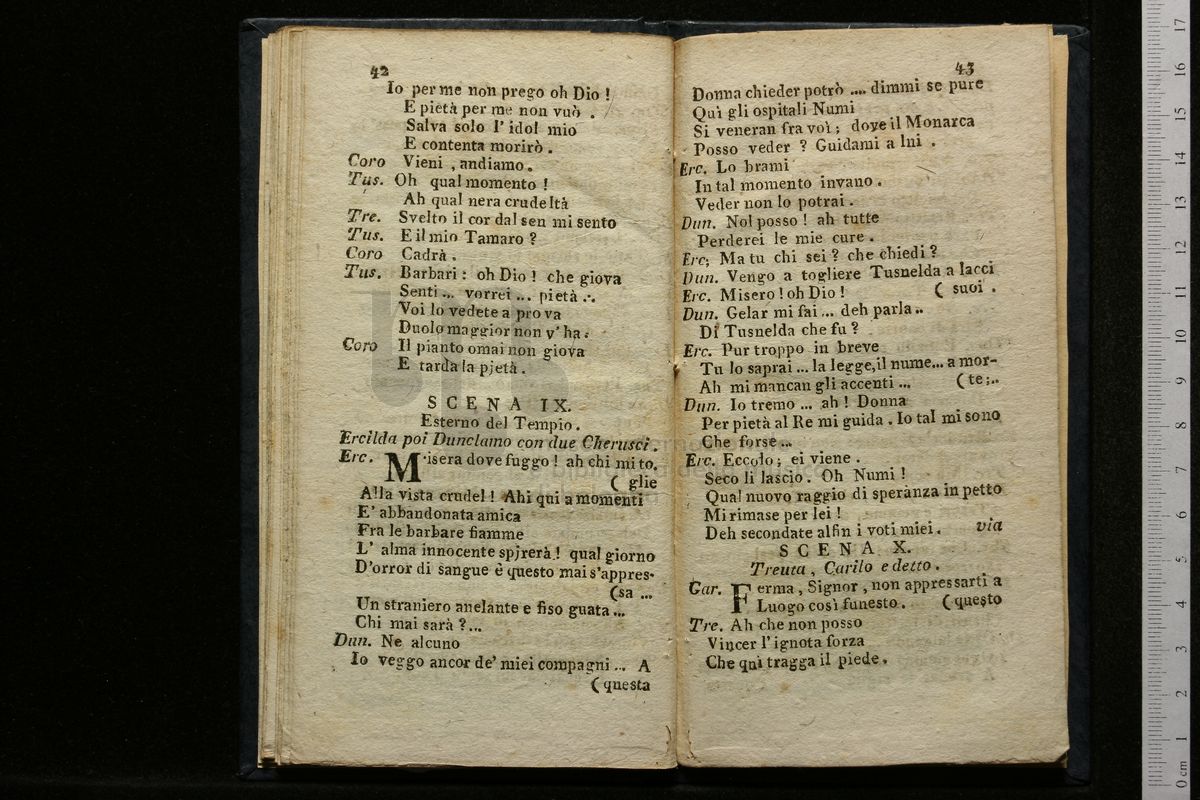 42
Io per me non prego oh Dio !
E pietà per me non vuò .
Salva solo l' idol mio
E contenta morirò .
Coro Vieni , andiamo .
Tus. Oh qual momento !
Ah qual nera crudeltà
Tre. Svelto il cor dal sen mi sento
Tus. E il mio Tamaro ?
Coro Cadrà .
Tus. Barbari : oh Dio ! che giova
Senti ... vorrei ... pietà .·.
Voi lo vedete a prova
Duolo maggior non v' ha .
Coro Il pianto omai non giova
E tarda la pjetà .
SCENA IX.
Esterno del Tempio .
Ercilda poi Dunclamo con due Cherusci .
Erc. Misera dove fuggo ! ah chi mi to.
( glie
Alla vista crudel ! Ahi qui a momenti
E' abbandonata amica
Fra le barbare fiamme
L' alma innocente spjrerà ! qual giorno
D'orror di sangue è questo mai s'appres-
(sa ...
Un straniero anelante e fiso guata ...
Chi mai sarà ?...
Dun. Ne alcuno
Io veggo ancor de' miei compagni ... A
( questa
43
Donna chieder potrò .... dimmi se pure
Quì gli ospitali Numi
Si veneran fra voi ; dove il Monarca
Posso veder ? Guidami a lui .
Erc. Lo brami
In tal momento invano .
Veder non lo potrai .
Dun. Nol posso ! ah tutte
Perderei le mie cure .
Erc; Ma tu chi sei ? che chiedi ?
Dun. Vengo a togliere Tusnelda a lacci
Erc. Misero ! oh Dio ! ( suoi .
Dun. Gelar mi fai ... deh parla ..
Di Tusnelda che fu ?
Erc. Pur troppo in breve
Tu lo saprai ... la legge, il nume... a mor-
Ah mi mancan gli accenti ... ( te ;..
Dun. Io tremo ... ah ! Donna
Per pietà al Re mi guida . Io tal mi sono
Che forse ...
Erc. Eccolo ; ei viene .
Seco li lascio . Oh Numi !
Qual nuovo raggio di speranza in petto
Mi rimase per lei !
Deh secondate alfin i voti miei . via
SCENA X.
Treuta , Carilo e detto .
Car. Ferma , Signor , non appressarti a
Luogo così funesto . ( questo
Tre. Ah che non posso
Vincer l' ignota forza
Che quì tragga il piede .